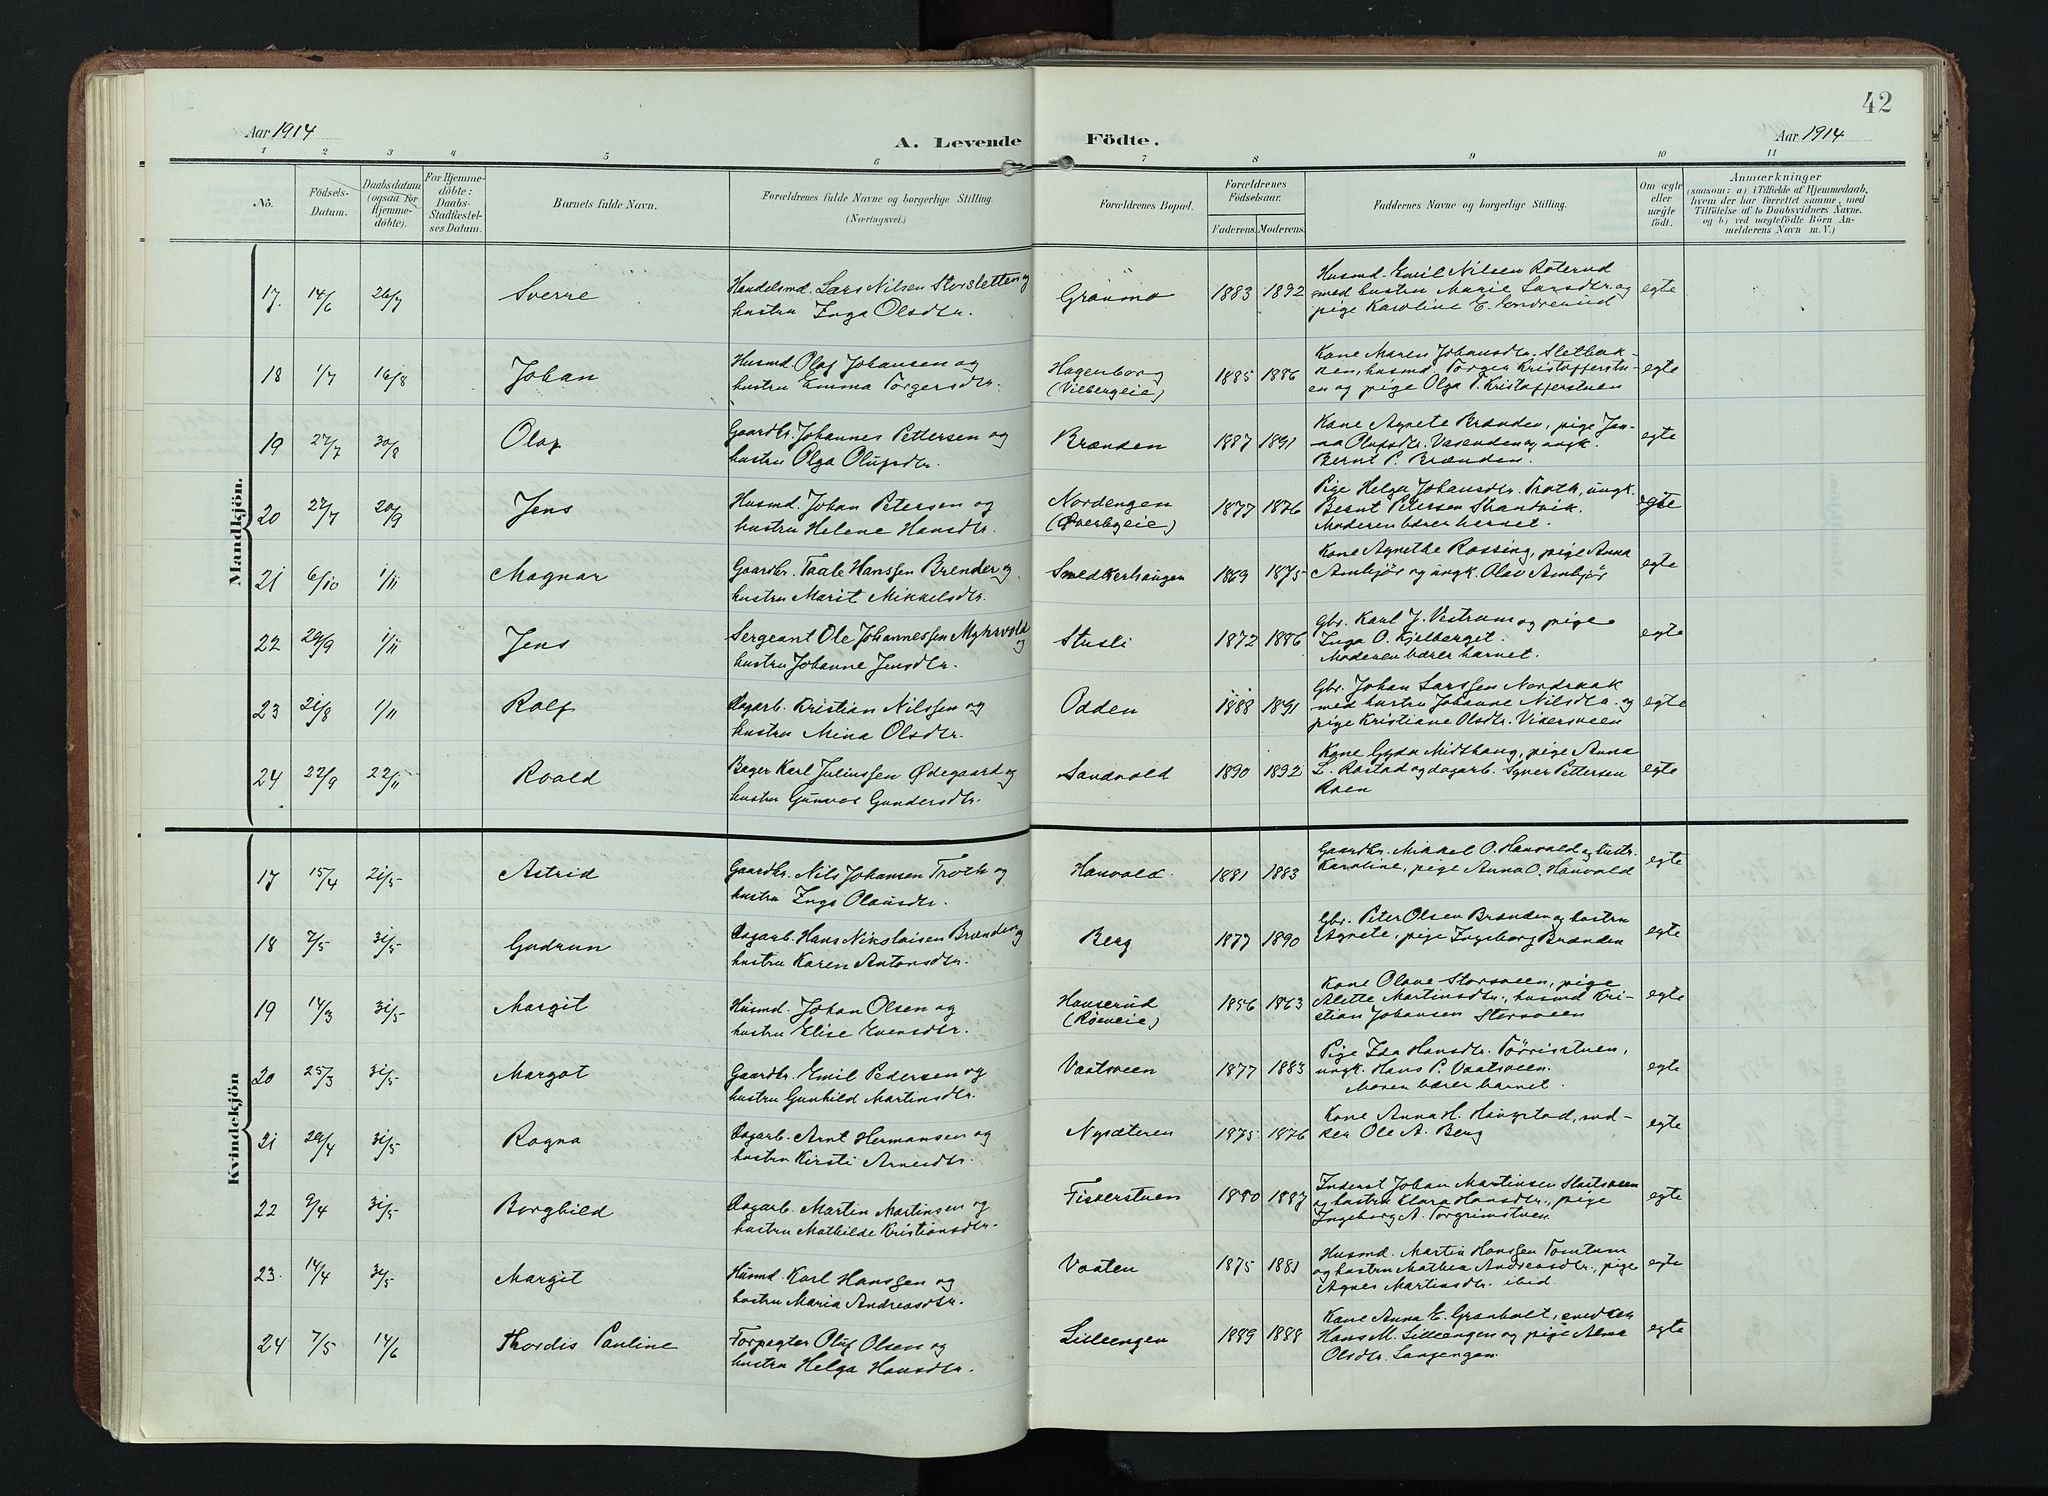 42
Aar 1914
A. Levende Födte.
Aar 1914
1 2 3 4 5 6 7 8 9 10 11
No.
Födsels-Datum.
Daabsdatum (ogsaa for Hjemmedöbte).
For Hjemmedöbte: Daabs-Stadfæstelses Datum.
Barnets fulde Navn.
Forældrenes fulde Navne og borgerlige Stilling.
(Næringsvei.)
Forældrenes Bopæl.
Forældrenes Födselsaar.
Faderens. Moderens.
Faddernes Navne og borgerlige Stilling.
Om ægte eller uægte födt.
Anmærkninger
(saasom: a) i Tilfælde af Hjemmedaab,
hvem der har forrettet samme, med
Tilföielse af to Daabsvidners Navne.
og b) ved uægtefödte Börn An-
melderens Navn m. V.)
Mandkjön.
17. 14/6 26/7 Sverre
Handelsmd. Lars Nilsen Storsletten og
hustru Inga Olsdtr.
Grønmo 1883 1892
Husmd. Emil Nilsen Røterud
med hustru Marie Larsdtr. og
pige Karoline E. Endrerud
egte
18 1/7 16/8 Johan
Husmd. Olaf Johansen og
hustru Emma Torgersdtr.
Hagenborg
(Vilbergeie)
1885 1886
Kone Maren Johansdtr. Sletbak-
ken, husmd. Torger Kristofferstu-
en og pige Olga T. Kristofferstuen
egte
19 27/7 30/8 Olaf
Gaardbr. Johannes Pettersen og
hustru Olga Olufsdtr.
Brænden 1887 1891
Kone Agnete Brænden, pige Jan-
na Olufsdtr. Vasenden og ungk.
Bernt P. Brænden.
egte
20 27/7 20/9 Jens
Husmd. Johan Petersen og
hustru Helene Hansdtr.
Nordengen
(Øverbyeie)
1877 1876
Pige Helga Johansdtr. Troth, ungk.
Bernt Petersen Strandvik.
Moderen bærer barnet.
egte
21 6/10 1/11 Magnar
Gaardbr. Taale Hanssen Brender og
hustru Marit Mikkelsdtr.
Smedkerhaugen 1869 1875
Kone Agnethe Rossing, pige Anna
Arnbjør og ungk. Olav Arnbjør
egte
22 29/9 1/11 Jens
Sergeant Ole Johannessen Myhrvold og
hustru Johanne Jensdtr.
Stusli 1872 1886
Gbr. Karl J. Vestrum og pige
Inga O. Kjelberget.
Moderen bærer barnet.
egte
23 21/8 1/11 Rolf
Dagarb. Kristian Nilssen og
hustru Mina Olsdtr.
Odden 1888 1891
Gbr. Johan Larssen Nordraak
med hustru Johanne Nilsdtr. og
pige Kristiane Olsdtr. Vikersveen
egte
24 22/9 22/11 Roald
Bager Karl Juliussen Ødegaard og
hustru Gunvor Gundersdtr.
Sandvold 1890 1892
Kone Gyda Midthaug, pige Anna
L. Rostad og dagarb. Syver Pettersen
Roen
egte
Kvindekjön
17 15/4 21/5 Astrid
Gaardbr. Nils Johansen Troth og
hustru Inga Olausdtr.
Hanvold 1881 1883
Gaardbr. Mikkel O. Hanvold og hustr.
Karoline, pige Anna O. Hanvold
egte
18 7/5 31/5 Gudrun
Dagarb. Hans Nikolaisen Brænden og
hustru Karen Antonsdtr.
Berg 1877 1890
Gbr. Peter Olsen Brænden og hustru
Agnete, pige Ingeborg Brænden
egte
19 14/3 31/5 Margit
Husmd. Johan Olsen og
hustru Elise Evensdtr.
Hanserud
(Røeveie)
1856 1863
Kone Olave Storsveen, pige
Alette Martinsdtr., husmd Kri-
stian Johansen Storsveen
egte
20 25/3 31/5 Margot
Gaardbr. Emil Pedersen og
hustru Gunhild Martinsdtr.
Vaatsveen 1877 1883
Pige Ida Hansdtr. Tørrisstuen,
ungk. Hans P. Vaatsveen.
Moren bærer barnet.
egte
21 29/4 31/5 Ragna
Dagarb. Arnt Hermansen og
hustru Kirsti Arnesdtr.
Nysæteren 1875 1876
Kone Anna H. Haugstad, snd-
ker Ole A. Berg
egte
22 9/4 31/5 Borghild
Dagarb. Martin Martinsen og
hustru Mathilde Kristiansdtr.
Fiskerstuen 1880 1887
Inderst Johan Martinsen Slaatsveen
og hustru Klara Hansdtr., pige
Ingeborg A. Torgrimstuen
egte
23. 14/4 31/5 Margit
Husmd. Karl Hanssen og
hustru Maria Andreasdtr.
Vaaten 1875 1881
Husmd. Martin Hanssen Tomtum
og hustru Mathea Andreasdtr., pige
Agnes Martinsdtr. ibid.
egte
24 7/5 14/6 Thordis Pauline
Forpagter Oluf Olsen og
hustru Helga Hansdtr.
Lilleengen 1889 1888
Kone Anna E. Granholt, snedker
Hans M. Lilleengen og pige Alma
Olsdtr. Langengen
egte